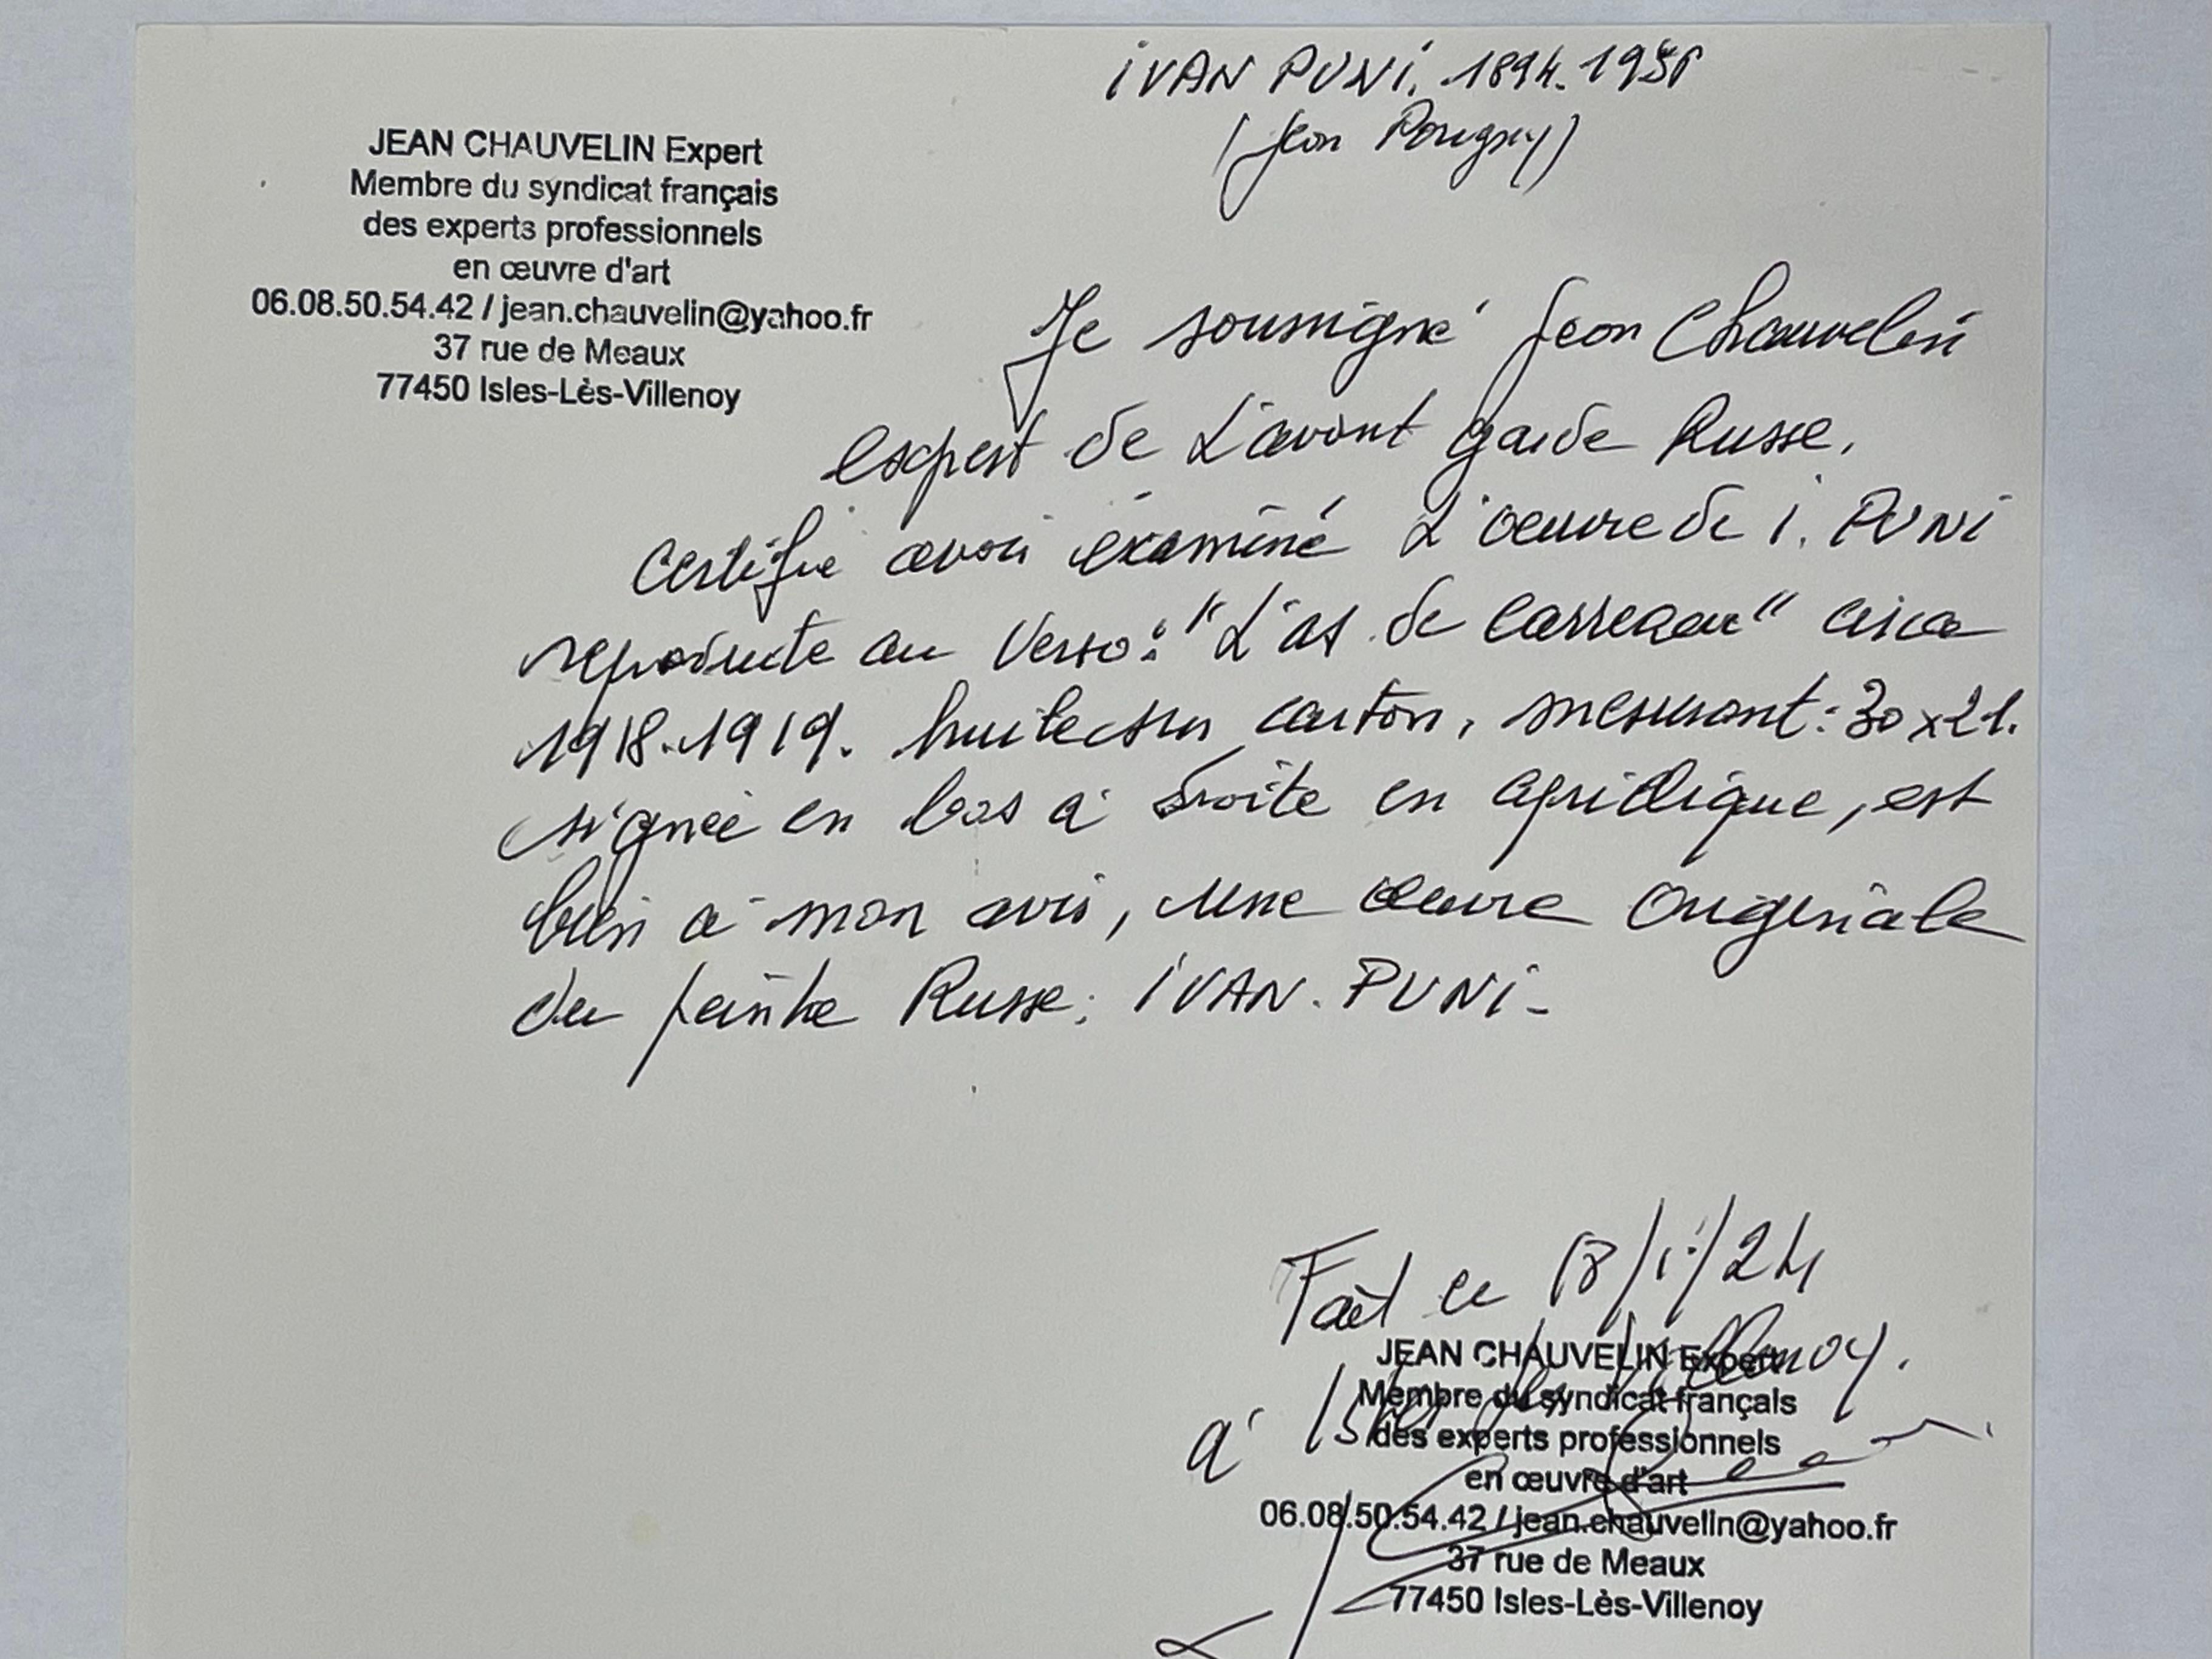 IVAN PUNI. 1894.1956
(Jean Pougny)
JEAN CHAUVELIN Expert
Membre du syndicat français
des experts professionnels
en œuvre d'art
06.08.50.54.42 / jean.chauvelin@yahoo.fr
37 rue de Meaux
77450 Isles-Lès-Villenoy
Je soussigné Jean Chauvelin
expert de L'avant garde Russe.
Certifie avoir éxaminé L'oeuvre de I. PUNI
reproduite au Verso: "L'as de Carreau" circa
1918-1919. huile sur carton, mesurant: 30x21.
signée en bas à droite en cyrillique, est
bien à mon avis, une œuvre Originale
du peintre Russe: IVAN. PUNI-
Fait ce 18/1/24
à Isles les Villenoy.
JEAN CHAUVELIN Expert
Membre du syndicat français
des experts professionnels
en œuvre d'art
06.08.50.54.42 / jean.chauvelin@yahoo.fr
37 rue de Meaux
77450 Isles-Lès-Villenoy